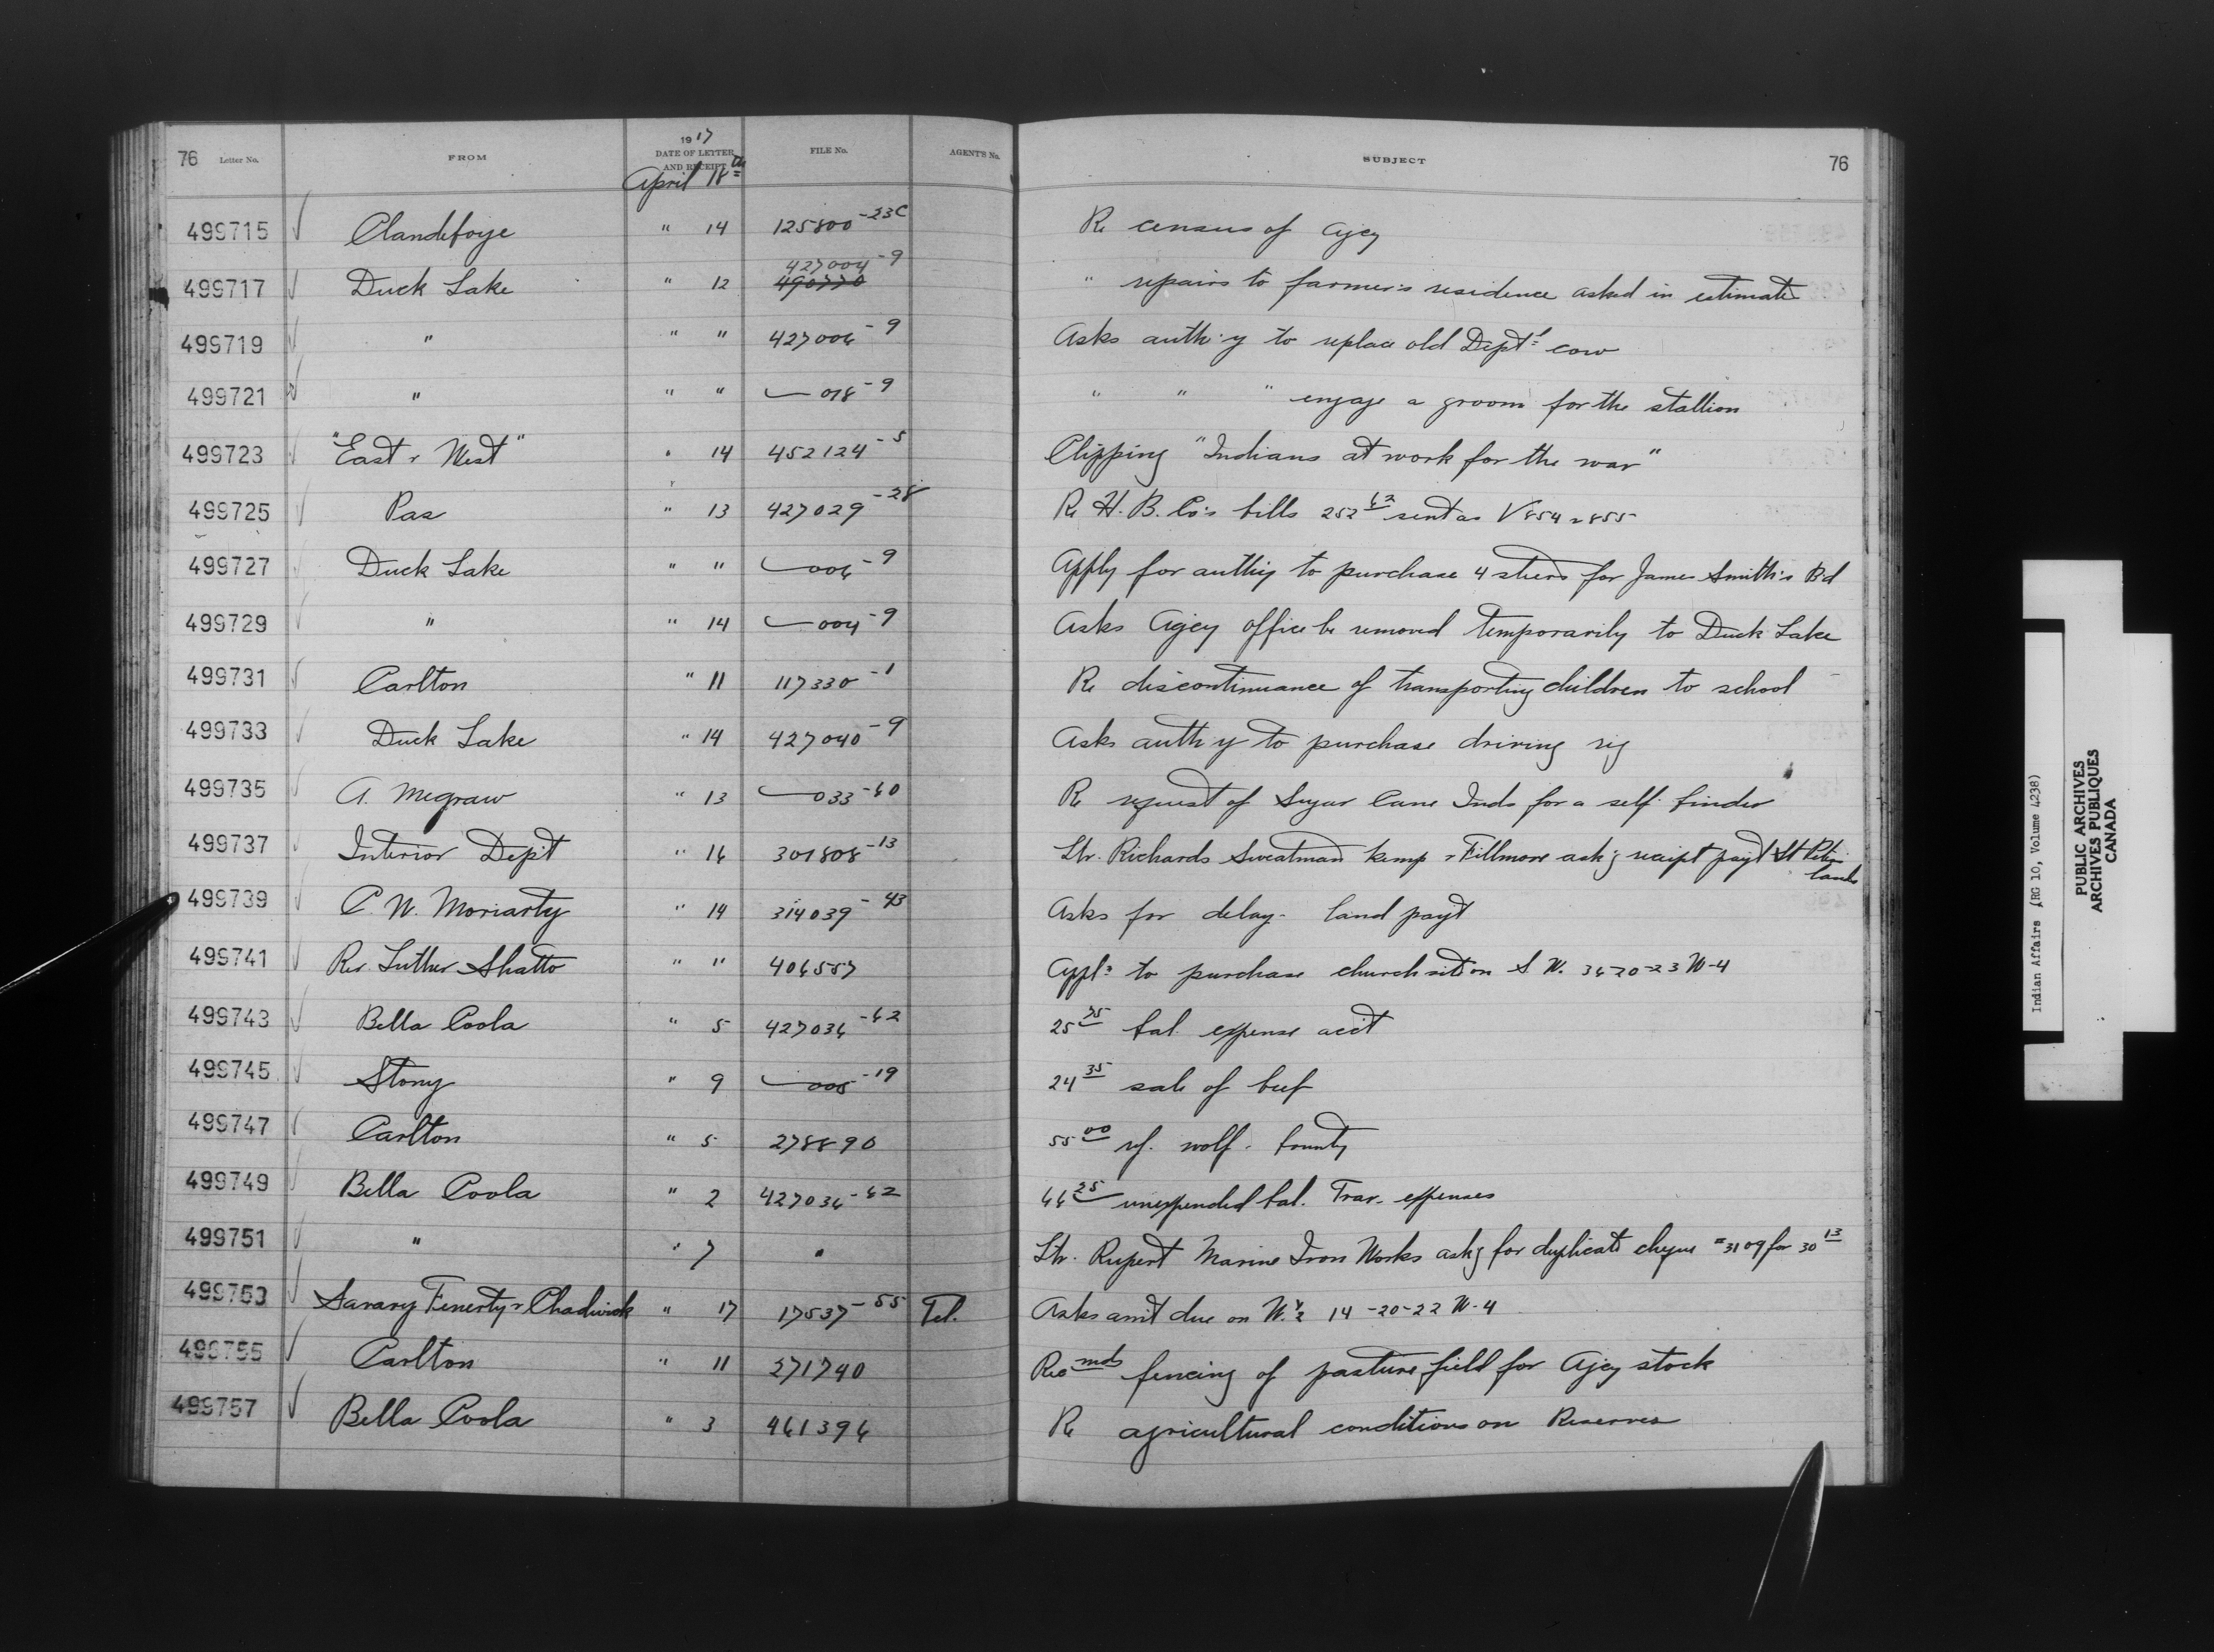 76 Letter No. FROM 1917 DATE OF LETTER AND RECEIPT FILE No. AGENT'S No. SUBJECT 76
April 18th
499715 Clandeboye " 14 125800-23C Re census of Agcy
427004-9
499717 Duck Lake " 12 490770 " repairs to farmer's residence asked in estimate
499719 " " " 427006-9 Asks auth'y to replace old Dept'l cow
499721 " " " 018-9 " " " engage a groom for the stallion
499723 "East & West" " 14 452124-5 Clipping "Indians at work for the war"
499725 Pas " 13 427029-28 Re H. B. Co's bills 252 63 sent as V 854 & 855
499727 Duck Lake " " 006-9 Apply for auth'y to purchase 4 steers for James Smith's Bd
499729 " " 14 004-9 Asks Agcy office be removed temporarily to Duck Lake
499731 Carlton " 11 117330-1 Re discontinuance of transporting children to school
499733 Duck Lake " 14 427040-9 Asks auth'y to purchase driving rig
499735 A. Megraw " 13 033-60 Re request of Sugar Cane Inds for a self binder
499737 Interior Dep't " 16 301808-13 Ltr. Richards Sweatman Kemp & Fillmore ask'g receipt pay't St Peter lands
499739 C. N. Moriarty " 14 314039-43 Asks for delay - land pay't
499741 Rev. Luther Shatto " " 406557 Appl'n to purchase church site on S W. 36-20-23 W-4
499743 Bella Coola " 5 427036-62 25 75 bal. expense acc't
499745 Stony " 9 008-19 24 35 sale of beef
499747 Carlton " 5 278890 55 00 rf. wolf bounty
499749 Bella Coola " 2 427036-62 66 25 unexpended bal. Trav. expenses
499751 " " 7 " Ltr. Rupert Marine Iron Works ask'g for duplicate cheque #3109 for 30 13
499753 Savary Fenerty & Chadwick " 17 17537-55 Tel. Asks am't due on W. ½ 14-20-22 W-4
499755 Carlton " 11 271740 Recmds fencing of pasture field for Agcy stock
499757 Bella Coola " 3 461396 Re agricultural conditions on Reserves
Indian Affairs (RG 10, Volume 4238)
PUBLIC ARCHIVES
ARCHIVES PUBLIQUES
CANADA